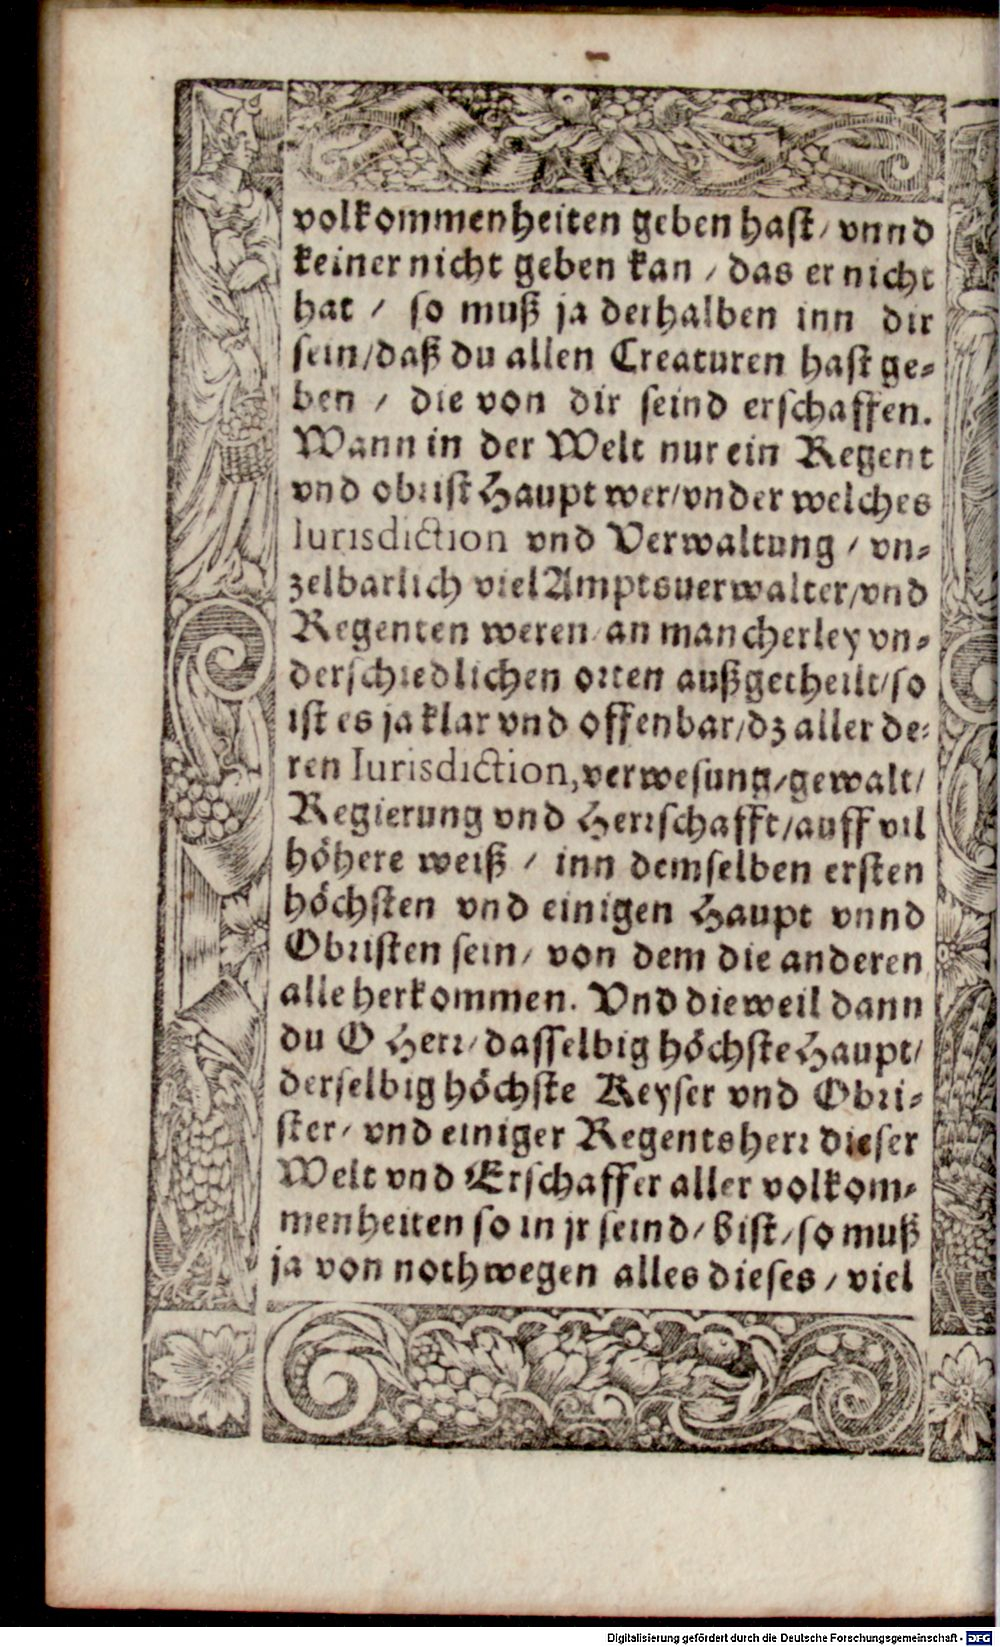 volkommenheiten geben hast/ vnnd
keiner nicht geben kan / das er nicht
hat / so muß ja derhalben inn dir
sein/daß du allen Creaturen hast ge-
ben / die von dir seind erschaffen.
Wann in der Welt nur ein Regent
vnd obrist Haupt wer/vnder welches
Iurisdiction vnd Verwaltung / vn-
zelbarlich viel Amptsuerwalter/vnd
Regenten weren/an mancherley vn-
derschiedlichen orten außgetheilt/so
ist es ja klar vnd offenbar/dz aller de-
ren Iurisdiction, verwesung/gewalt/
Regierung vnd Herrschafft/auff vil
höhere weiß / inn demselben ersten
höchsten vnd einigen Haupt vnnd
Obristen sein/ von dem die anderen
alle herkommen. Vnd dieweil dann
du O Herr/dasselbig höchste Haupt/
derselbig höchste Keyser vnd Obri-
ster/ vnd einiger Regentsherr dieser
Welt vnd Erschaffer aller volkom-
menheiten so in jr seind/ bist/so muß
ja von nothwegen alles dieses / viel
Digitalisierung gefördert durch die Deutsche Forschungsgemeinschaft - DFG